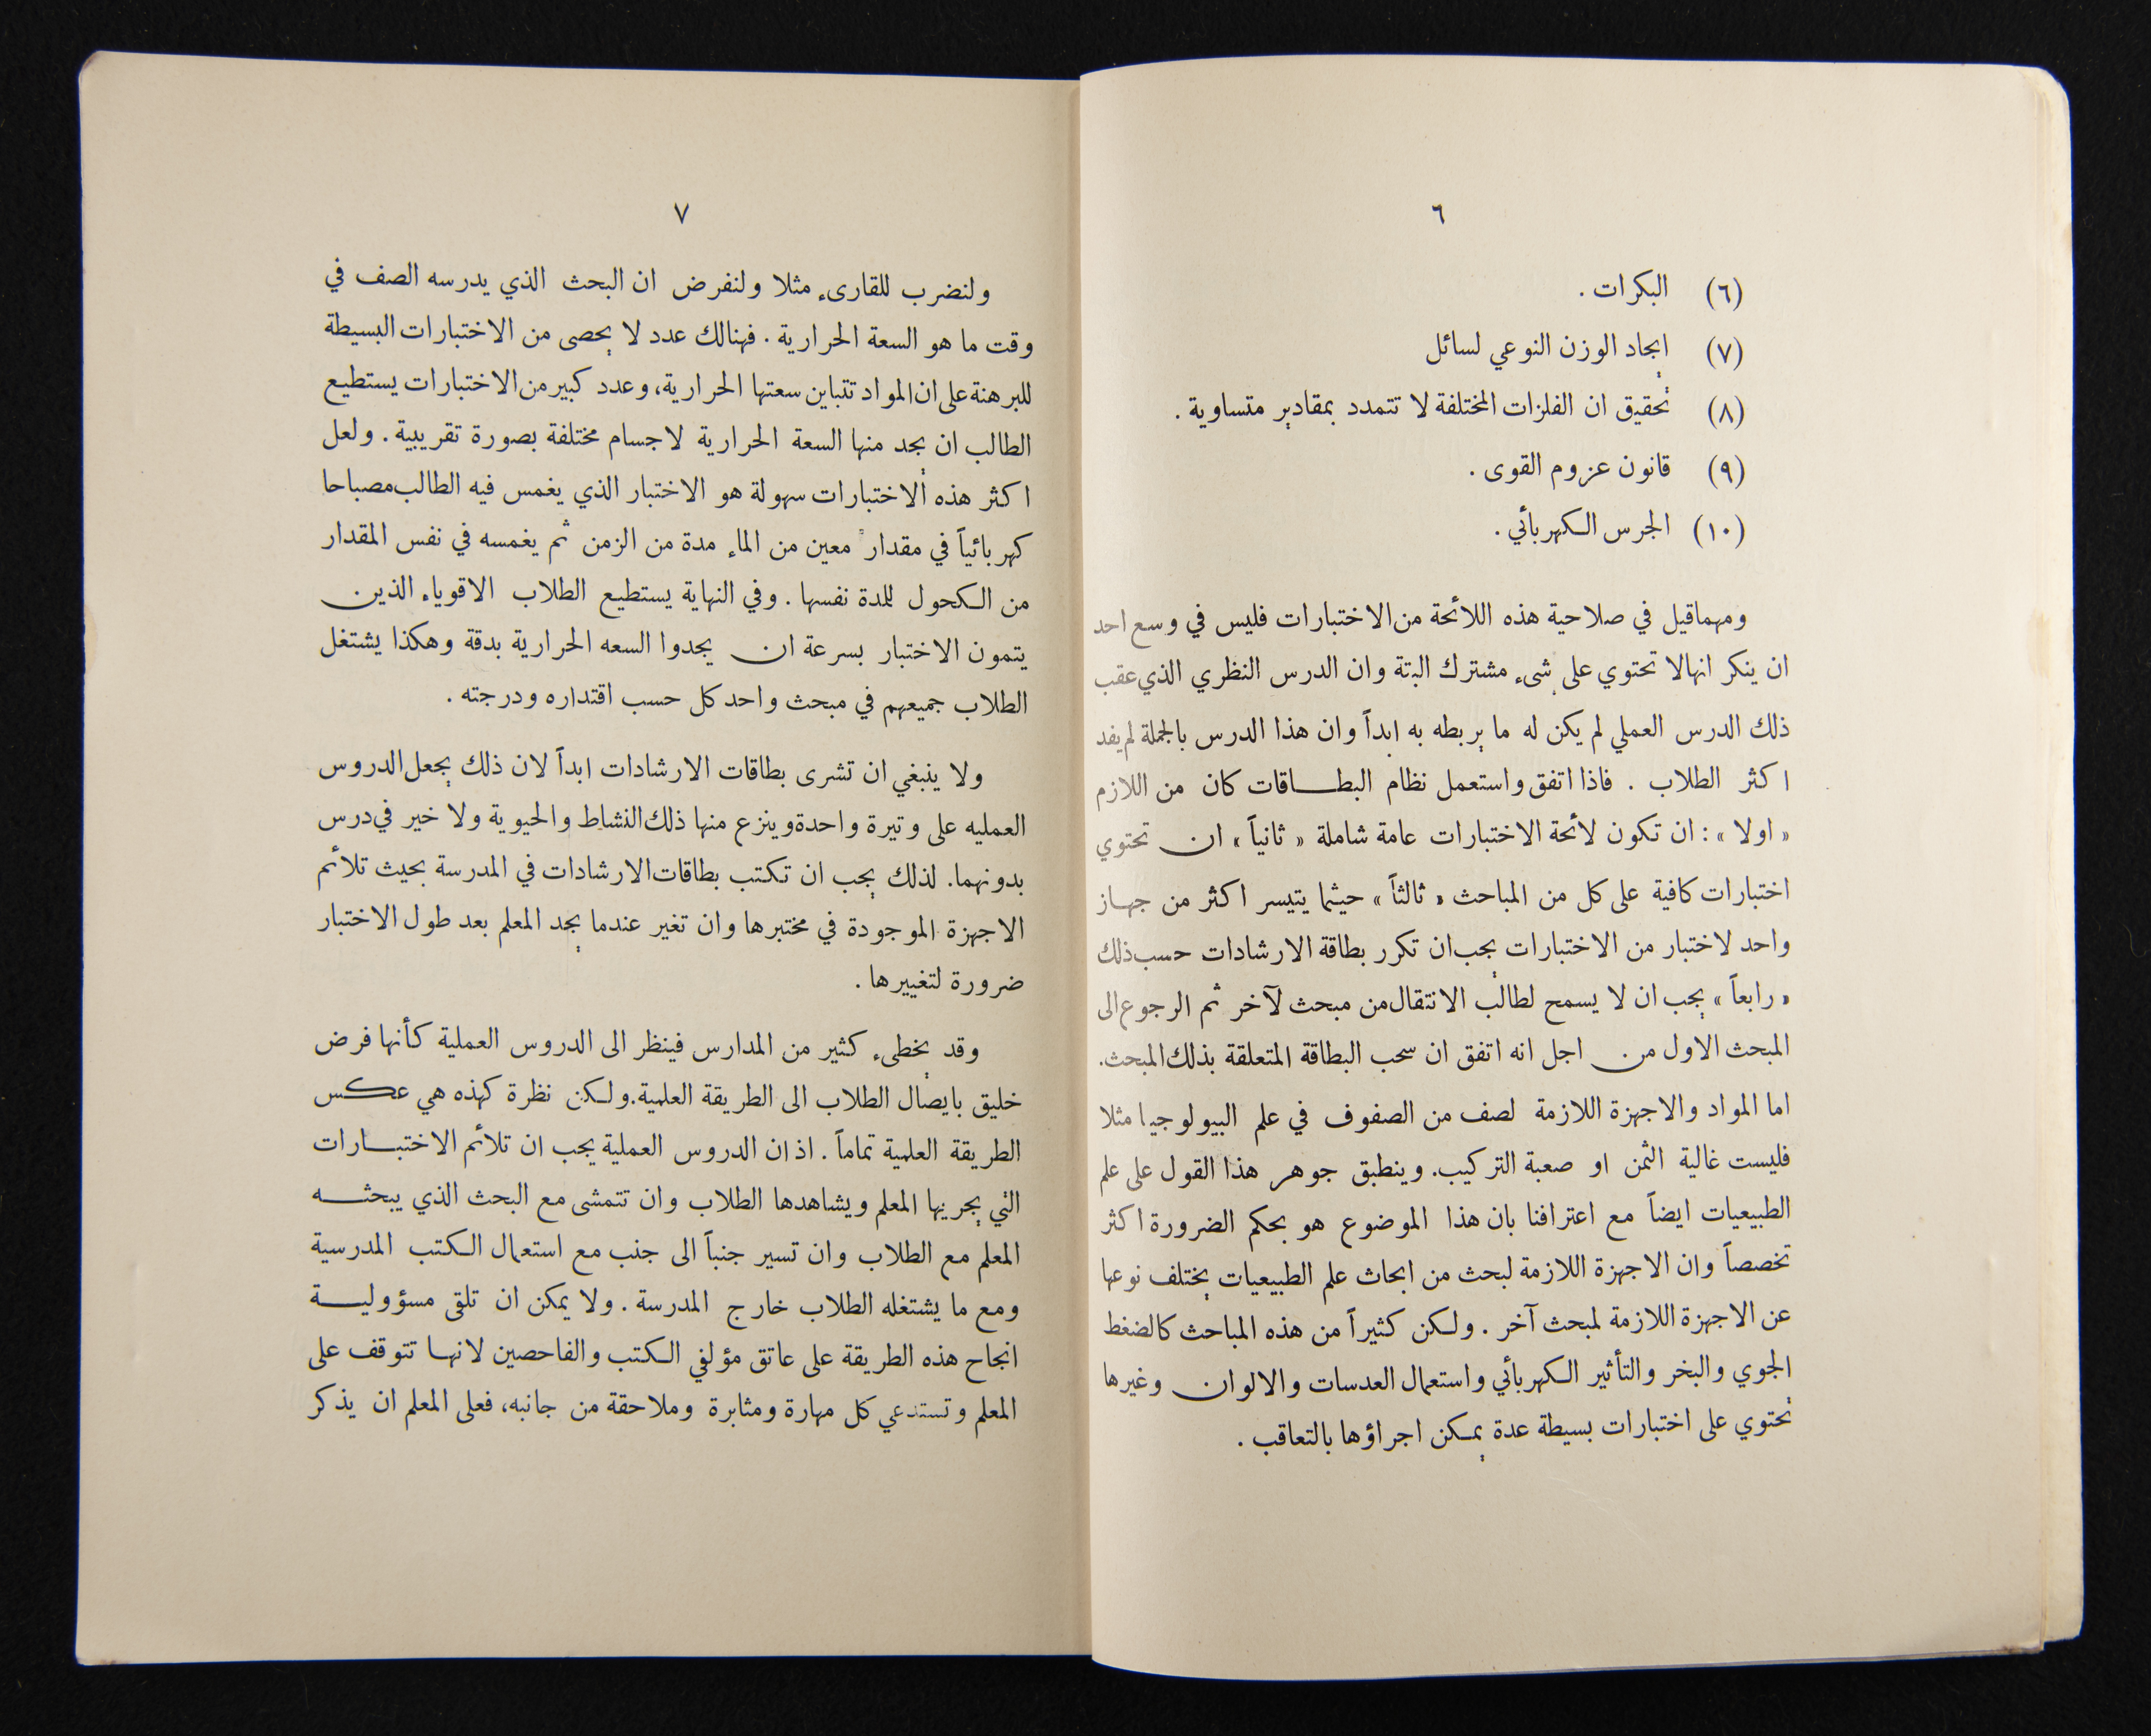 ٦
(٦) البكرات .
(٧) إيجاد الوزن النوعي لسائل
(٨) تحقيق ان الفلزات المختلفة لا تتمدد بمقادير متساوية .
(٩) قانون عزوم القوى .
(١٠) الجرس الكهربائي .
ومهما قيل في صلاحية هذه اللائحة من الاختبارات فليس في وسع احد
ان ينكر انها لا تحتوي على شيء مشترك البتة وان الدرس النظري الذي عقب
ذلك الدرس العملي لم يكن له ما يربطه به ابداً وان هذا الدرس بالجملة لم يفد
اكثر الطلاب . فاذا اتفق واستعمل نظام البطاقات كان من اللازم
« اولا » : ان تكون لائحة الاختبارات عامة شاملة « ثانياً » ان تحتوي
اختبارات كافية على كل من المباحث « ثالثاً » حيثما يتيسر اكثر من جهاز
واحد لاختبار من الاختبارات يجب ان تكرر بطاقة الارشادات حسب ذلك
« رابعاً » يجب ان لا يسمح لطالب الانتقال من مبحث لآخر ثم الرجوع الى
المبحث الاول من اجل انه اتفق ان سحب البطاقة المتعلقة بذلك المبحث.
اما المواد والاجهزة اللازمة لصف من الصفوف في علم البيولوجيا مثلا
فليست غالية الثمن او صعبة التركيب. وينطبق جوهر هذا القول على علم
الطبيعيات ايضاً مع اعترافنا بان هذا الموضوع هو بحكم الضرورة اكثر
تخصصاً وان الاجهزة اللازمة لبحث من ابحاث علم الطبيعيات يختلف نوعها
عن الاجهزة اللازمة لمبحث آخر . ولكن كثيراً من هذه المباحث كالضغط
الجوي والبخر والتأثير الكهربائي واستعمال العدسات والالوان وغيرها
تحتوي على اختبارات بسيطة عدة يمكن اجراؤها بالتعاقب .
٧
ولنضرب للقارىء مثلا ولنفرض ان البحث الذي يدرسه الصف في
وقت ما هو السعة الحرارية . فهنالك عدد لا يحصى من الاختبارات البسيطة
للبرهنة على ان المواد تتباين سعتها الحرارية، وعدد كبير من الاختبارات يستطيع
الطالب ان يجد منها السعة الحرارية لاجسام مختلفة بصورة تقريبية . ولعل
اكثر هذه الاختبارات سهولة هو الاختبار الذي يغمس فيه الطالب مصباحا
كهربائياً في مقدار معين من الماء مدة من الزمن ثم يغمسه في نفس المقدار
من الكحول للمدة نفسها . وفي النهاية يستطيع الطلاب الاقوياء الذين
يتمون الاختبار بسرعة ان يجدوا السعه الحرارية بدقة وهكذا يشتغل
الطلاب جميعهم في مبحث واحد كل حسب اقتداره ودرجته .
ولا ينبغي ان تشرى بطاقات الارشادات ابداً لان ذلك يجعل الدروس
العمليه على وتيرة واحدة وينزع منها ذلك النشاط والحيوية ولا خير في درس
بدونهما. لذلك يجب ان تكتب بطاقات الارشادات في المدرسة بحيث تلائم
الاجهزة الموجودة في مختبرها وان تغير عندما يجد المعلم بعد طول الاختبار
ضرورة لتغييرها .
وقد يخطىء كثير من المدارس فينظر الى الدروس العملية كأنها فرض
خليق بايصال الطلاب الى الطريقة العلمية. ولكن نظرة كهذه هي عكس
الطريقة العلمية تماماً . اذ ان الدروس العملية يجب ان تلائم الاختبارات
التي يجريها المعلم ويشاهدها الطلاب وان تتمشى مع البحث الذي يبحثه
المعلم مع الطلاب وان تسير جنباً الى جنب مع استعمال الكتب المدرسية
ومع ما يشتغله الطلاب خارج المدرسة . ولا يمكن ان تلقى مسؤولية
انجاح هذه الطريقة على عاتق مؤلفي الكتب والفاحصين لانها تتوقف على
المعلم وتستدعي كل مهارة ومثابرة وملاحقة من جانبه، فعلى المعلم ان يذكر